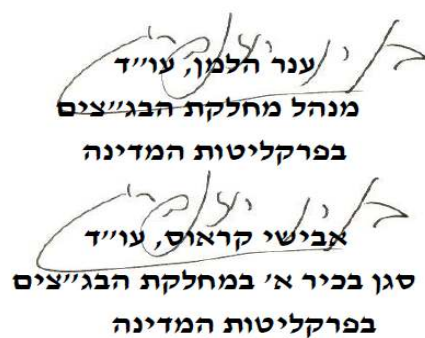 ענר הלמן, עו״ד
מנהל מחלקת הבג״צים
בפרקליטות המדינה
אבישי קראוס, עו״ד
סגן בכיר א׳ במחלקת הבג״צים
בפרקליטות המדינה